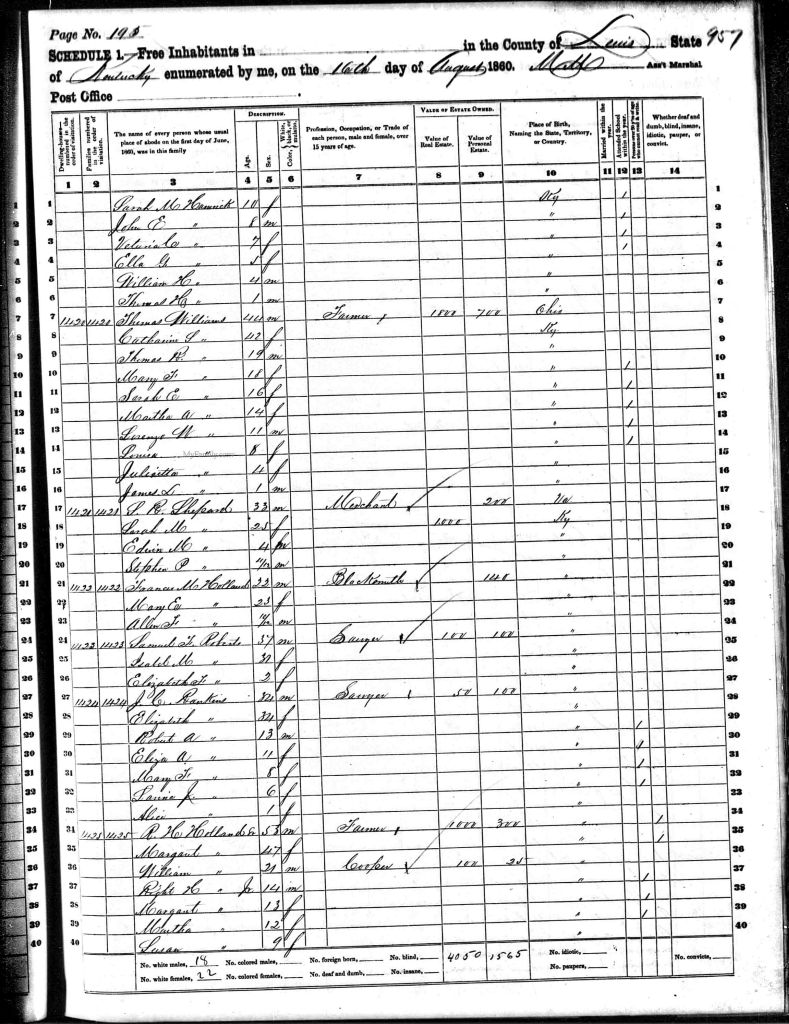 Page No. 195
SCHEDULE 1.—Free Inhabitants in in the County of Lewis State 957
of Kentucky enumerated by me, on the 16th day of August 1860. Ass't Marshal.
Post Office
Dwelling-houses—numbered in the order of visitation.
Families numbered in the order of visitation.
The name of every person whose usual place of abode on the first day of June, 1860, was in this family
DESCRIPTION.
Age.
Sex.
Color, White, black, or mulatto.
Profession, Occupation, or Trade of each person, male and female, over 15 years of age.
VALUE OF ESTATE OWNED.
Value of Real Estate.
Value of Personal Estate.
Place of Birth, Naming the State, Territory, or Country.
Married within the year.
Attended School within the year.
Persons over 20 y'rs of age who cannot read & write.
Whether deaf and dumb, blind, insane, idiotic, pauper, or convict.
1 2 3 4 5 6 7 8 9 10 11 12 13 14
1 Sarah M Hamrick 10 f Ky 1
2 John E " 8 m " 1
3 " 7 f " 1
4 Ella G " 5 f " 1
5 William H " 4 m "
6 Thomas H " 1 m "
7 1420 1420 Thomas Williams 44 m Farmer 1800 700 Ohio
8 Catharine S " 42 f Ky
9 Thomas R " 19 m "
10 Mary F " 18 f " 1
11 Sarah E " 16 f " 1
12 Martha A " 14 f " 1
13 Lorenzo W " 11 m " 1
14 Louisa " 8 f " 1
15 Julietta " 4 f "
16 James L " 1 m "
17 1421 1421 S R Shepard 33 m Merchant 200 Va
18 Sarah M " 25 f 1000 Ky
19 Edwin M " 4 m "
20 Stephen P " m "
21 1422 1422 Frances M Holland 22 m Blacksmith 140 "
22 Mary E " 23 f "
23 Allen F " m "
24 1423 1423 Samuel F Roberts 37 m Sawyer 100 100 "
25 Isabel M " f "
26 Elizabeth F " 2 f "
27 1424 1424 J C Rankins 34 m Sawyer 50 100 "
28 Elizabeth " 34 f "
29 Robert A " 13 m " 1
30 Eliza A " 11 f " 1
31 Mary F " 8 f " 1
32 " 6 f " 1
33 Alice " 1 f "
34 1425 1425 R H Holland Sr 53 m Farmer 1000 300 " 1
35 Margaret " 47 f " 1
36 William " 21 m Cooper 100 25 "
37 Right H " Jr 14 m " 1
38 Margaret " 13 f " 1
39 Martha " 12 f " 1
40 Susan " 9 f "
No. white males, 18 No. colored males, No. foreign born, No. blind, 4050 1565 No. idiotic, No. convicts,
No. white females, 22 No. colored females, No. deaf and dumb, No. insane, No. paupers,